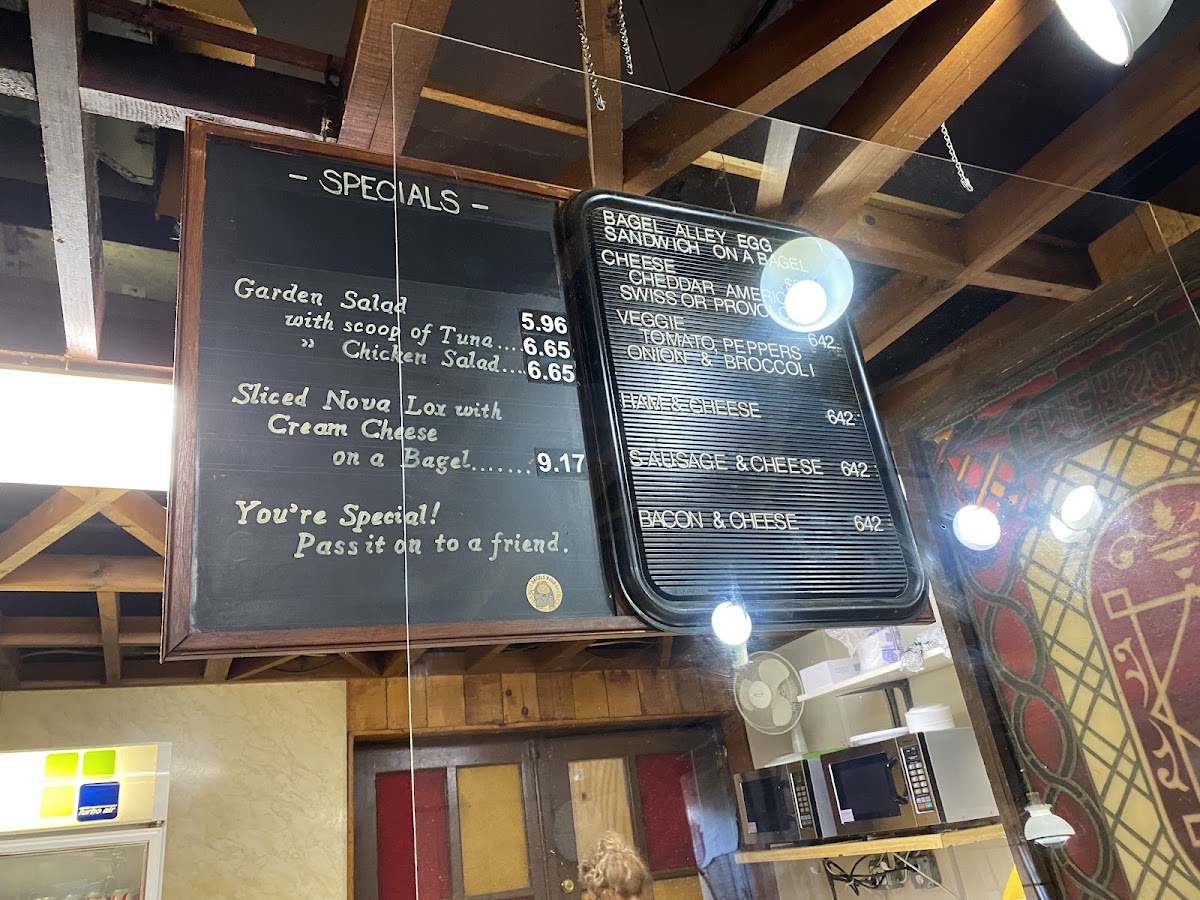 - SPECIALS -
Garden Salad 5.96
with scoop of Tuna.... 6.65
" Chicken Salad... 6.65
Sliced Nova Lox with
Cream Cheese
on a Bagel....... 9.17
You're Special!
Pass it on to a friend.
BAGEL ALLEY EGG
SANDWICH ON A BAGEL
CHEESE
CHEDDAR AMERIC
SWISS OR PROVO
VEGGIE 642
TOMATO, PEPPERS
ONION & BROCCOLI
HAM & CHEESE 642
SAUSAGE & CHEESE 642
BACON & CHEESE 642
turbo air